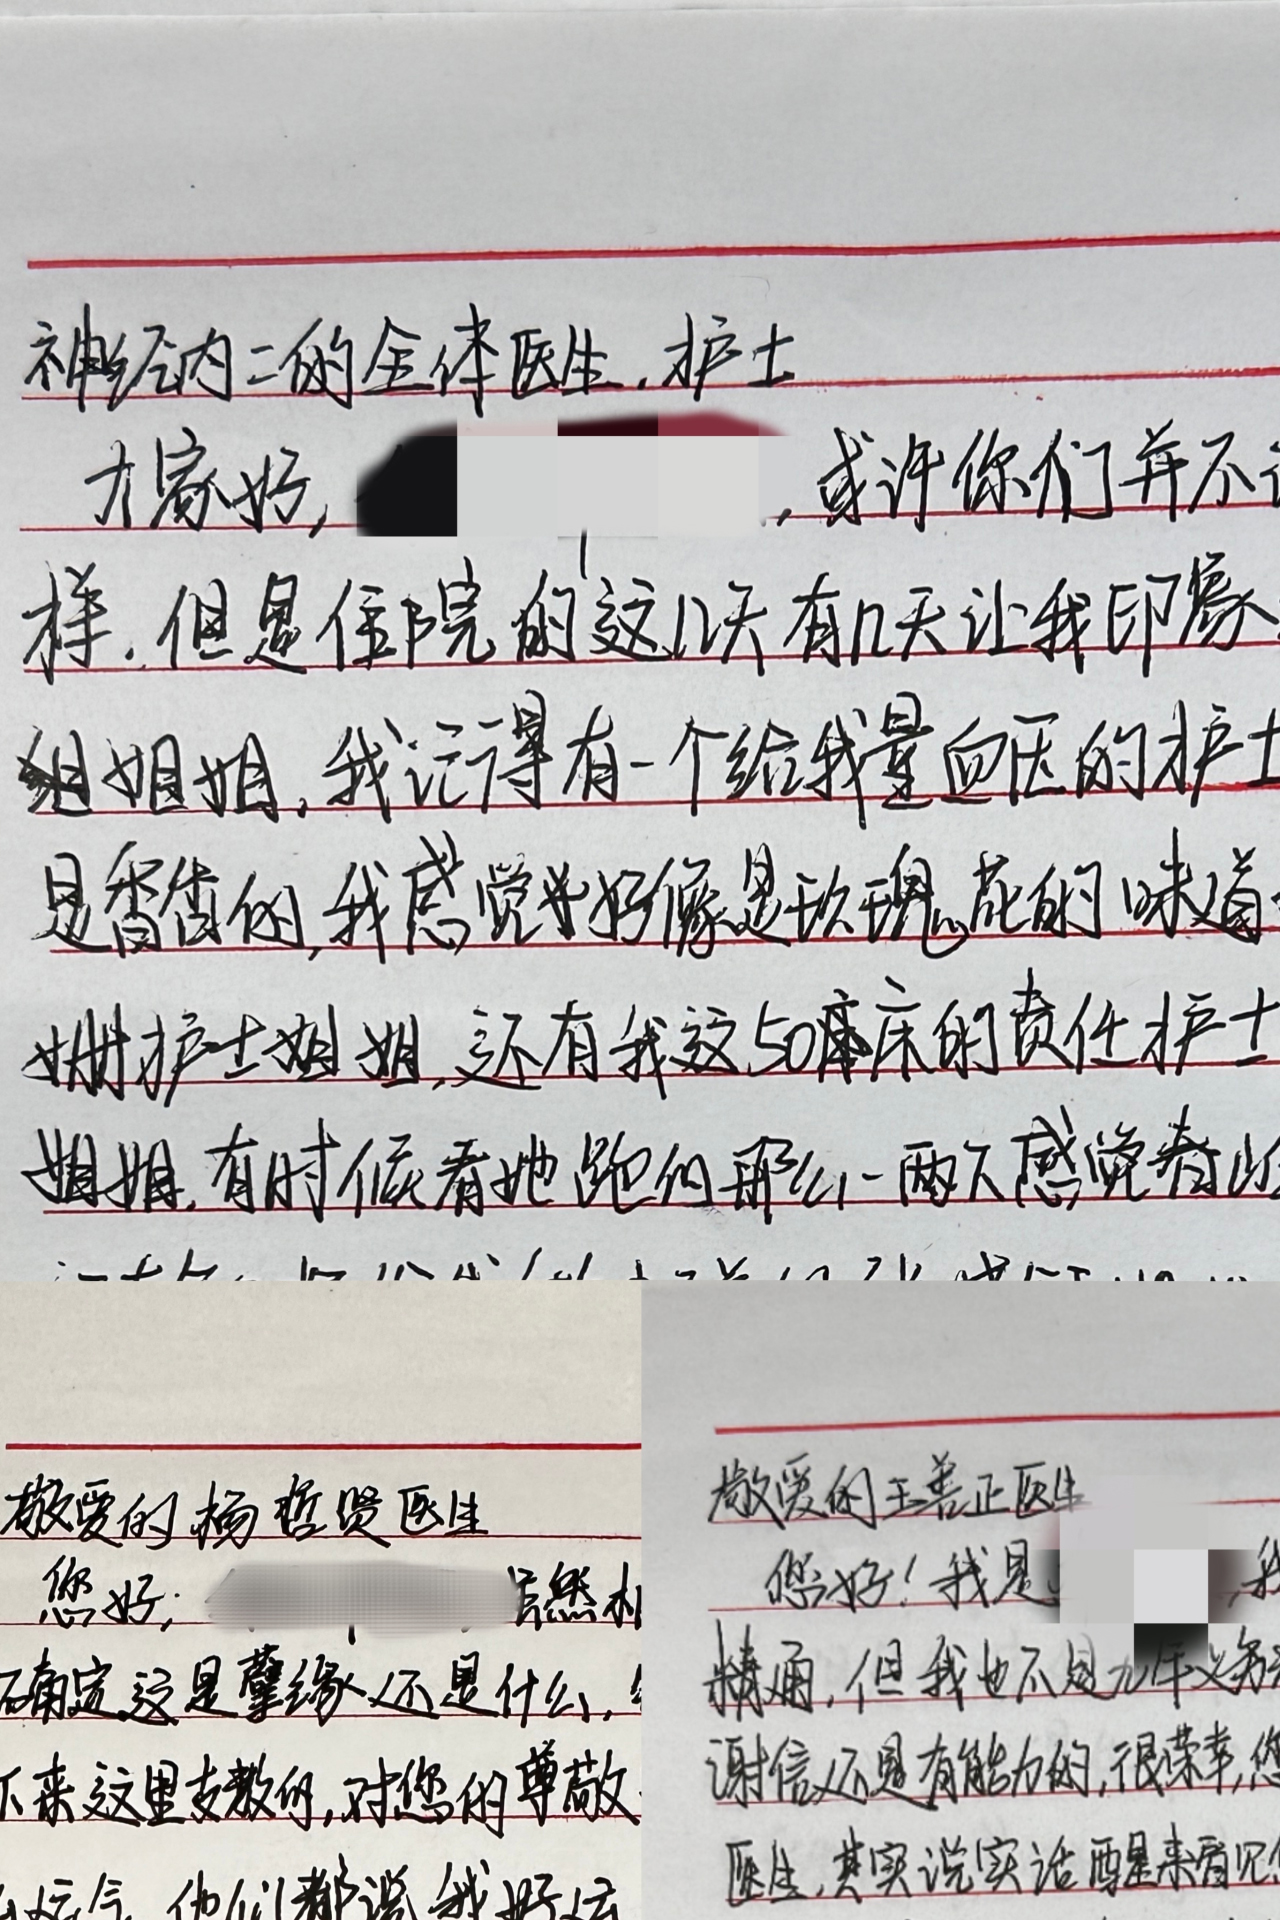 神经内二的全体医生、护士
大家好,，或许你们并不
样，但是住院的这几天有几天让我印象
姐姐，我记得有一个给我量血压的护士
是香香的，我感觉好像是玫瑰花的味道
姗护士姐姐，还有我这50床的责任护士
姐姐，有时候看她跑的那么一两天感觉看
敬爱的杨哲贤医生
您好；居然
确定这是孽缘还是什么，
下来这里支教的，对您的尊敬
运气，他们都说我好运
敬爱的王善正医生
您好！我是我
精通，但我也不是九年义务
谢信还是有能力的，很荣幸，您
医生，其实说实话醒来看见